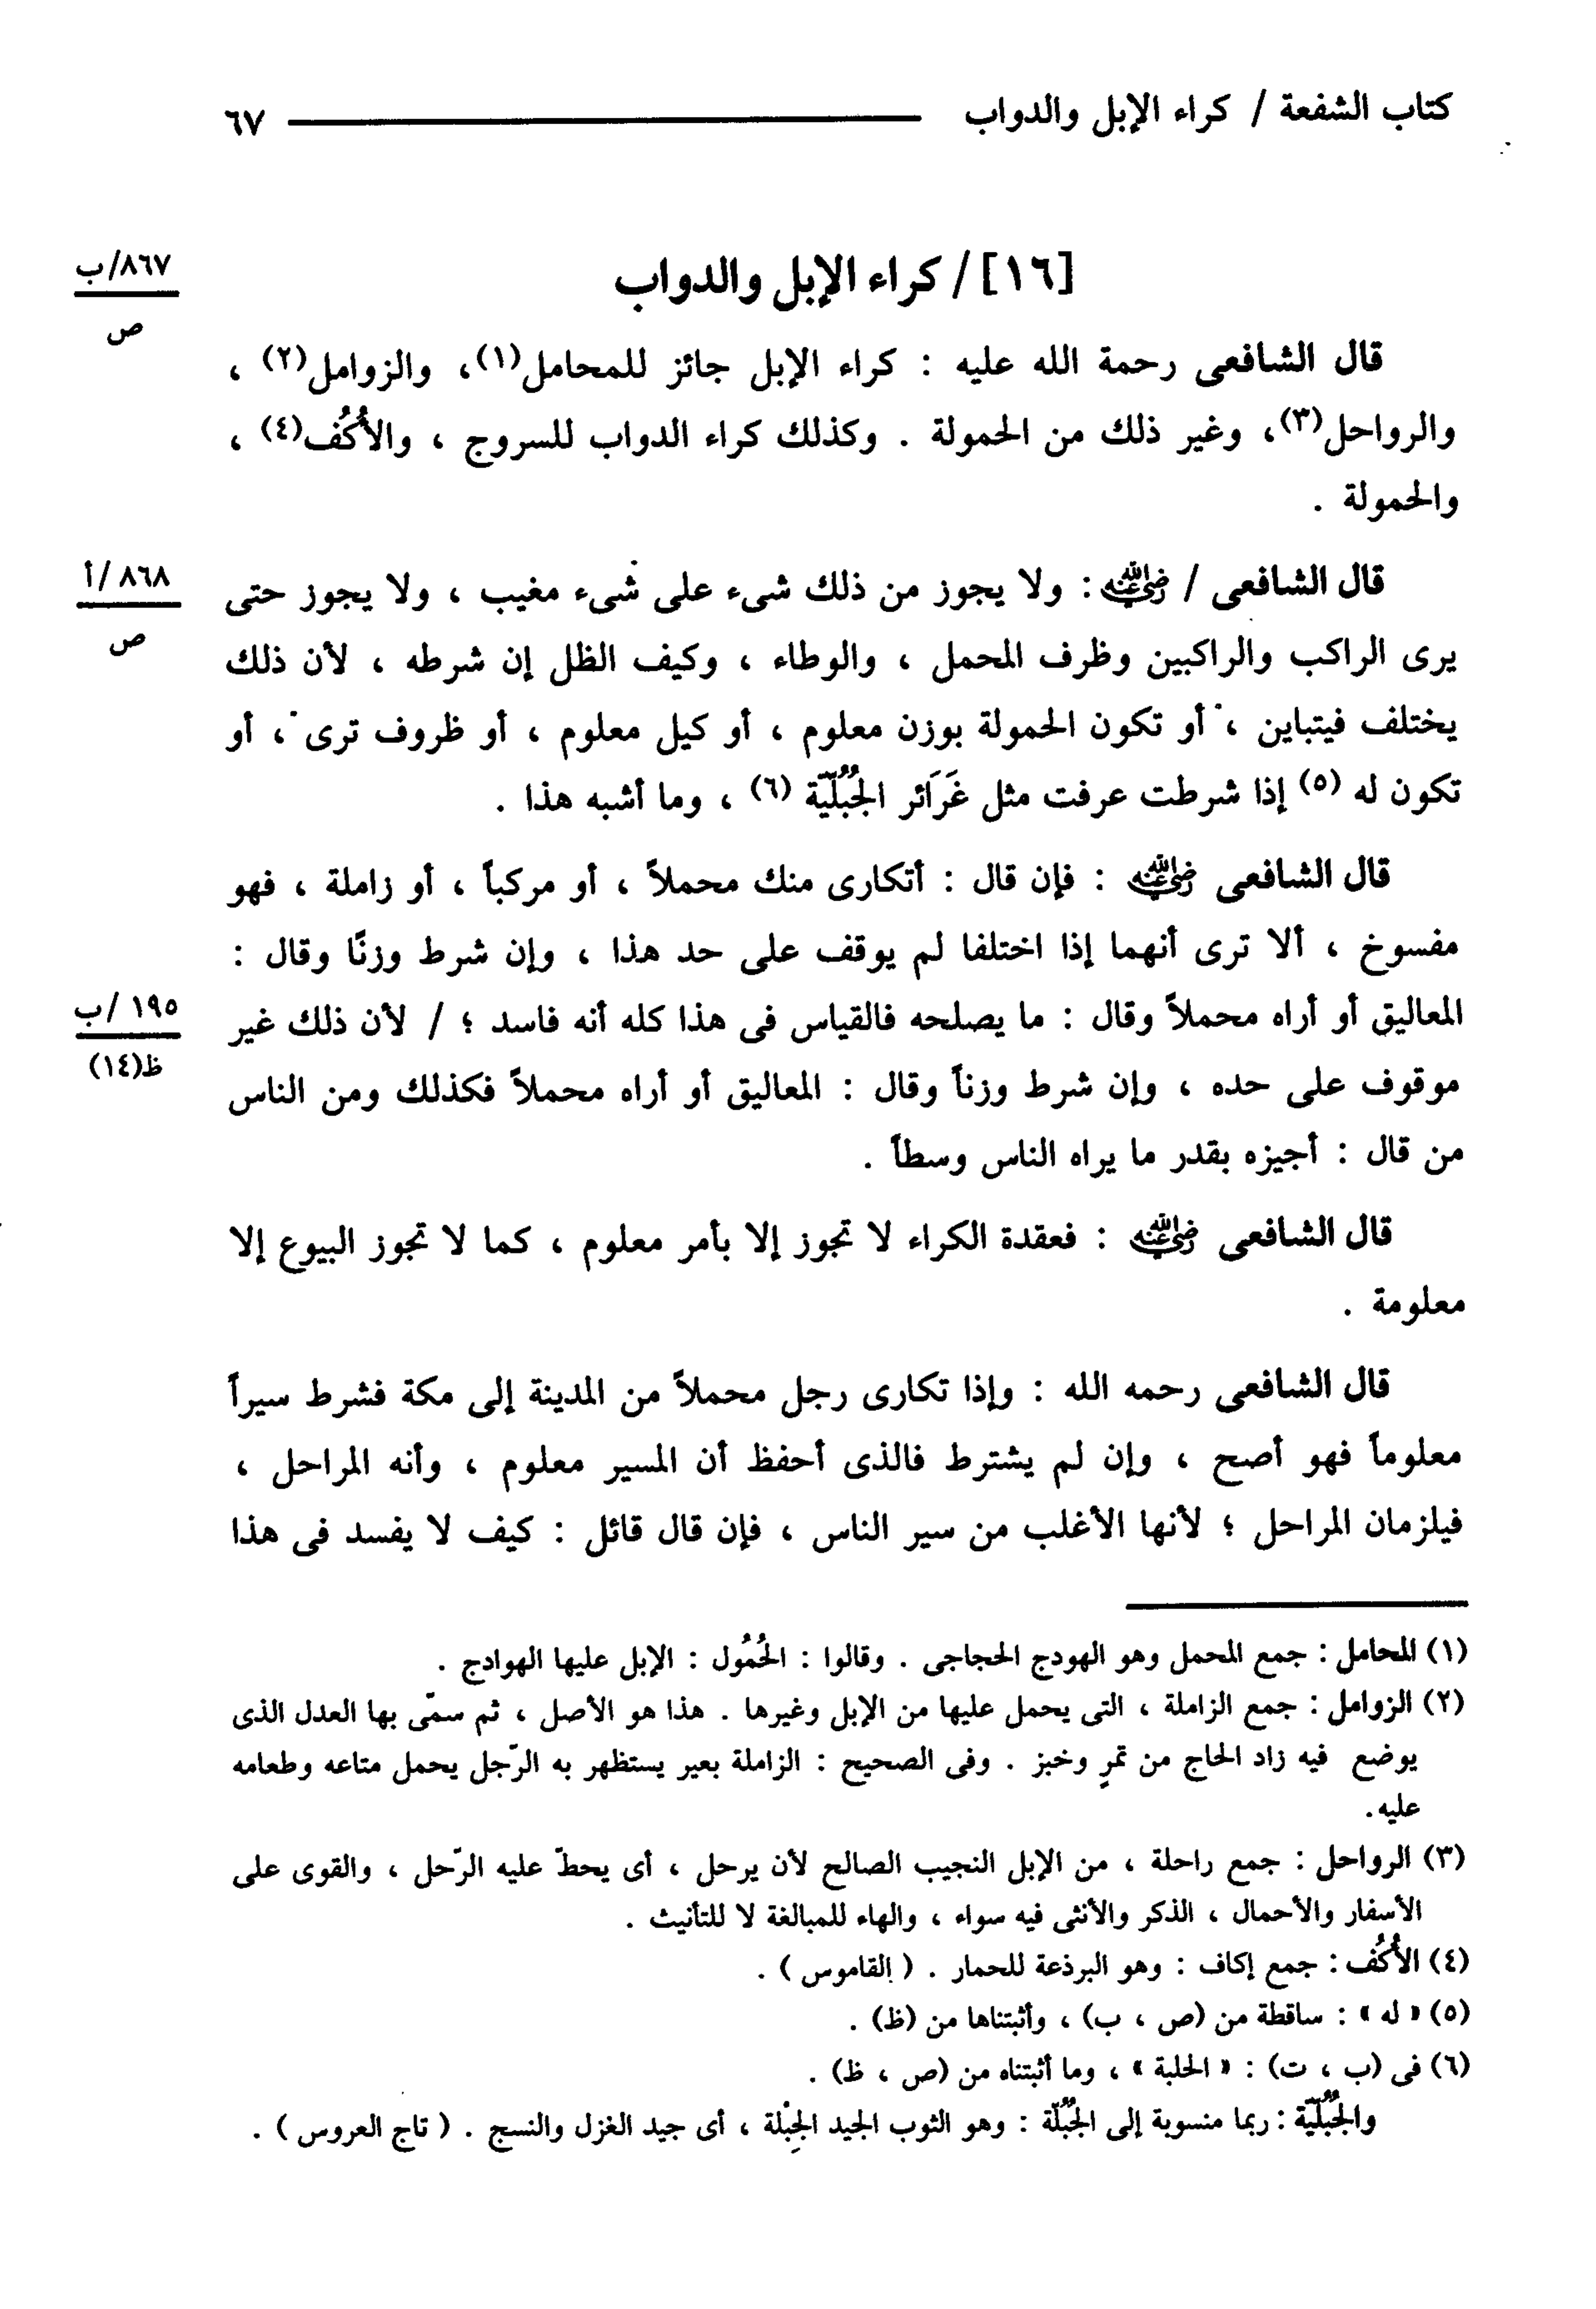 كتاب الشفعة / كراء الإبل والدواب ٦٧
[١٦] / كراء الإبل والدواب
٨٦٧/ب
ص
قال الشافعى رحمة الله عليه : كراء الإبل جائز للمحامل(١)، والزوامل(٢) ،
والرواحل(٣)، وغير ذلك من الحمولة . وكذلك كراء الدواب للسروج ، والأُكُف(٤) ،
والحمولة .
٨٦٨/أ
ص
قال الشافعى / رضي الله عنه : ولا يجوز من ذلك شىء على شىء مغيب ، ولا يجوز حتى
يرى الراكب والراكبين وظرف المحمل ، والوطاء ، وكيف الظل إن شرطه ، لأن ذلك
يختلف فيتباين ، أو تكون الحمولة بوزن معلوم ، أو كيل معلوم ، أو ظروف ترى ، أو
تكون له (٥) إذا شرطت عرفت مثل غَرَائر الجُبُلِّيَّة (٦) ، وما أشبه هذا .
قال الشافعى رضي الله عنه : فإن قال : أتكارى منك محملاً ، أو مركباً ، أو زاملة ، فهو
مفسوخ ، ألا ترى أنهما إذا اختلفا لم يوقف على حد هذا ، وإن شرط وزنًا وقال :
المعاليق أو أراه محملاً وقال : ما يصلحه فالقياس فى هذا كله أنه فاسد ؛ / لأن ذلك غير
١٩٥ /ب
ظ(١٤)
موقوف على حده ، وإن شرط وزناً وقال : المعاليق أو أراه محملاً فكذلك ومن الناس
من قال : أجيزه بقدر ما يراه الناس وسطاً .
قال الشافعى رضي الله عنه : فعقدة الكراء لا تجوز إلا بأمر معلوم ، كما لا تجوز البيوع إلا
معلومة .
قال الشافعى رحمه الله : وإذا تكارى رجل محملاً من المدينة إلى مكة فشرط سيراً
معلوماً فهو أصح ، وإن لم يشترط فالذى أحفظ أن المسير معلوم ، وأنه المراحل ،
فيلزمان المراحل ؛ لأنها الأغلب من سير الناس ، فإن قال قائل : كيف لا يفسد فى هذا
(١) المحامل : جمع المحمل وهو الهودج الحجاجى . وقالوا : الحُمُول : الإبل عليها الهوادج .
(٢) الزوامل : جمع الزاملة ، التى يحمل عليها من الإبل وغيرها . هذا هو الأصل ، ثم سمّى بها العدل الذى
يوضع فيه زاد الحاج من تمرٍ وخبز . وفى الصحيح : الزاملة بعير يستظهر به الرّجل يحمل متاعه وطعامه
عليه.
(٣) الرواحل : جمع راحلة ، من الإبل النجيب الصالح لأن يرحل ، أى يحطّ عليه الرّحل ، والقوى على
الأسفار والأحمال ، الذكر والأنثى فيه سواء ، والهاء للمبالغة لا للتأنيث .
(٤) الأُكُف : جمع إكاف : وهو البرذعة للحمار . ( القاموس ) .
(٥) « له » : ساقطة من (ص ، ب) ، وأثبتناها من (ظ) .
(٦) فى (ب ، ت) : « الحلبة » ، وما أثبتناه من (ص ، ظ) .
والجُبُلِّيَّة : ربما منسوبة إلى الجُبُلَّة : وهو الثوب الجيد الجِبْلة ، أى جيد الغزل والنسج . ( تاج العروس ) .